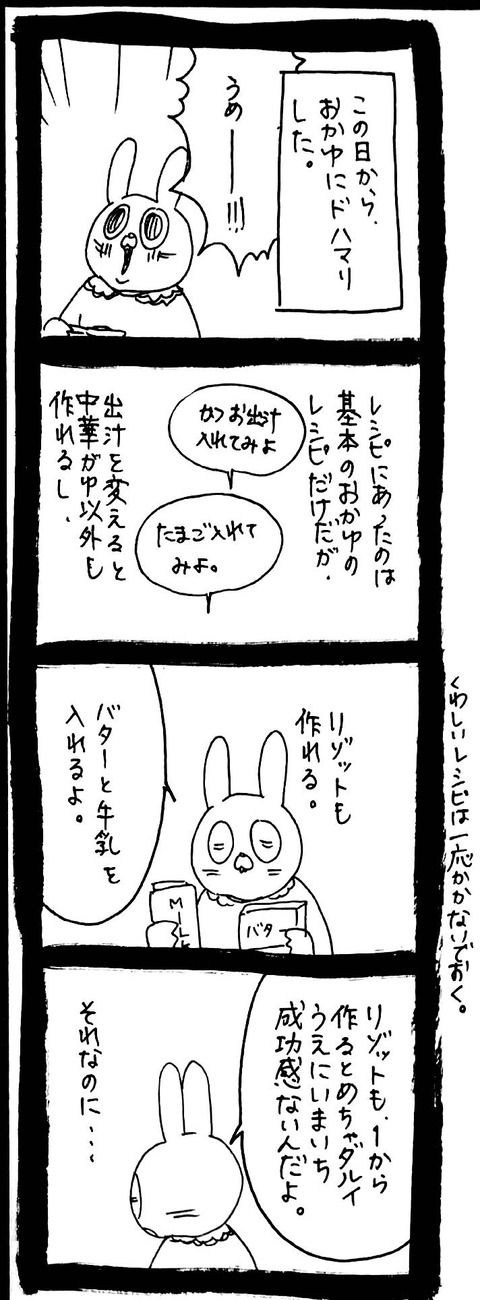 この日から、
おかゆにドハマリ
した。
うめーーー!!!
レシピにあったのは
基本のおかゆの
レシピだけだが、
かつお出汁
入れてみよ
たまご入れて
みよ。
出汁を変えると
中華がゆ以外も
作れるし、
リゾットも
作れる。
MILK
バタ
バターと牛乳を
入れるよ。
くわしいレシピは一応かかないでおく。
リゾットも、1から
作るとめちゃダルイ
うえにいまいち
成功感ないんだよ。
それなのに・・・